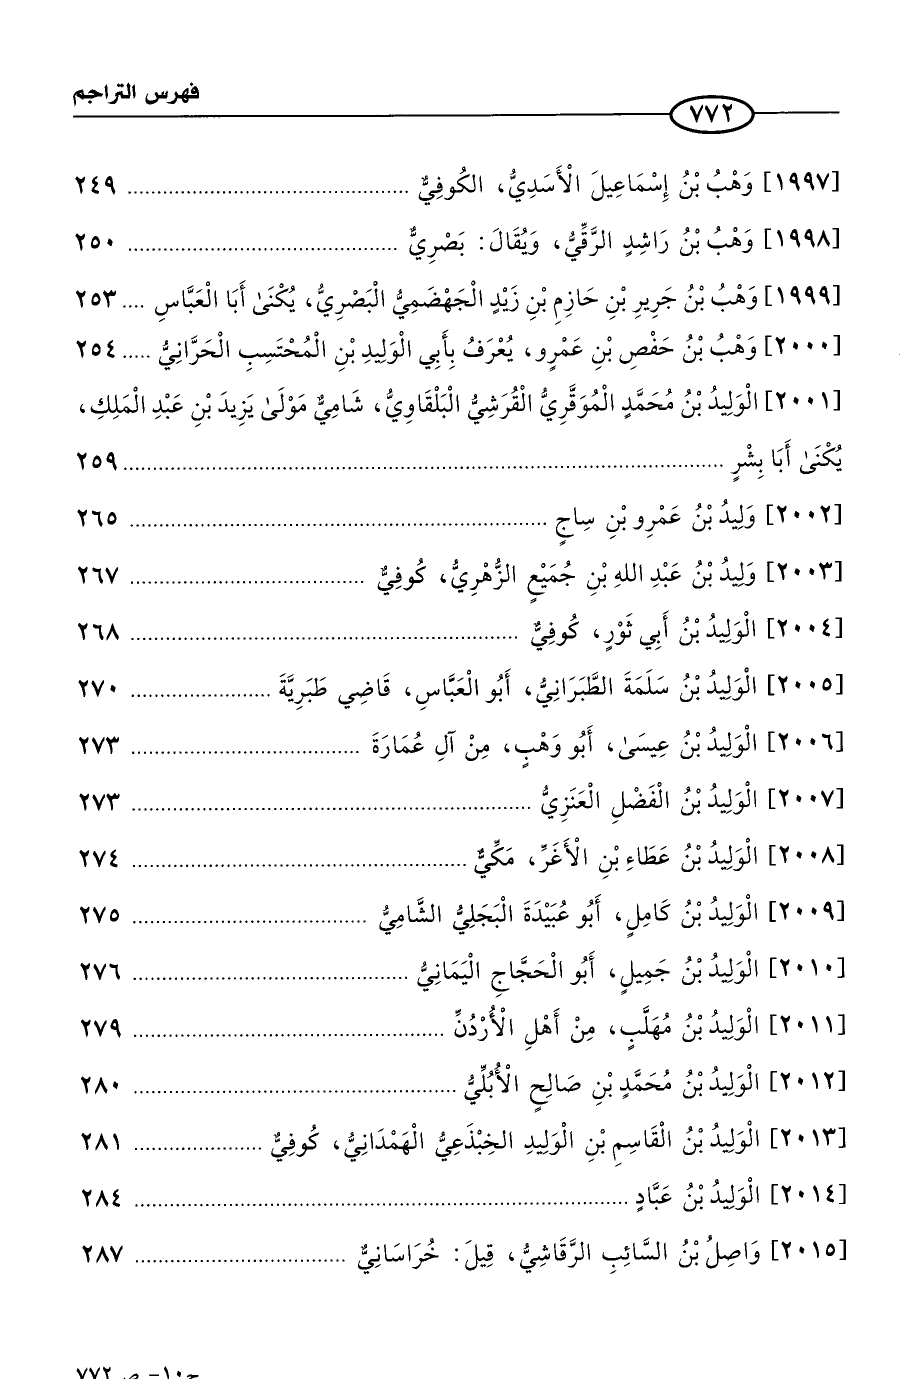 فهرس التراجم
٧٧٢
[١٩٩٧] وَهْبُ بْنُ إِسْمَاعِيلَ الْأَسَدِيُّ، الكُوفِيُّ ................ ٢٤٩
[١٩٩٨] وَهْبُ بْنُ رَاشِدٍ الرَّقِّيُّ، وَيُقَالَ: بَصْرِيٌّ ................ ٢٥٠
[١٩٩٩] وَهْبُ بْنُ جَرِيرِ بْنِ حَازِمِ بْنِ زَيْدٍ الْجَهْضَمِيُّ الْبَصْرِيُّ، يُكْنَىٰ أَبَا الْعَبَّاسِ .... ٢٥٣
[٢٠٠٠] وَهْبُ بْنُ حَفْصِ بْنِ عَمْرٍو، يُعْرَفُ بِأَبِي الْوَلِيدِ بْنِ الْمُحْتَسِبِ الْحَرَّانِيُّ ..... ٢٥٤
[٢٠٠١] الْوَلِيدُ بْنُ مُحَمَّدٍ الْمُوَقَّرِيُّ الْقُرَشِيُّ الْبَلْقَاوِيُّ، شَامِيٌّ مَوْلَىٰ يَزِيدَ بْنِ عَبْدِ الْمَلِكِ،
يُكْنَىٰ أَبَا بِشْرٍ ................ ٢٥٩
[٢٠٠٢] وَلِيدُ بْنُ عَمْرِو بْنِ سِاجٍ ................ ٢٦٥
[٢٠٠٣] وَلِيدُ بْنُ عَبْدِ اللهِ بْنِ جُمَيْعٍ الزُّهْرِيُّ، كُوفِيٌّ ................ ٢٦٧
[٢٠٠٤] الْوَلِيدُ بْنُ أَبِي ثَوْرٍ، كُوفِيٌّ ................ ٢٦٨
[٢٠٠٥] الْوَلِيدُ بْنُ سَلَمَةَ الطَّبَرَانِيُّ، أَبُو الْعَبَّاسِ، قَاضِي طَبَرِيَّةَ ................ ٢٧٠
[٢٠٠٦] الْوَلِيدُ بْنُ عِيسَىٰ، أَبُو وَهْبٍ، مِنْ آلِ عُمَارَةَ ................ ٢٧٣
[٢٠٠٧] الْوَلِيدُ بْنُ الْفَضْلِ الْعَنَزِيُّ ................ ٢٧٣
[٢٠٠٨] الْوَلِيدُ بْنُ عَطَاءِ بْنِ الْأَغَرِّ، مَكِّيٌّ ................ ٢٧٤
[٢٠٠٩] الْوَلِيدُ بْنُ كَامِلٍ، أَبُو عُبَيْدَةَ الْبَجَلِيُّ الشَّامِيُّ ................ ٢٧٥
[٢٠١٠] الْوَلِيدُ بْنُ جَمِيلٍ، أَبُو الْحَجَّاجِ الْيَمَانِيُّ ................ ٢٧٦
[٢٠١١] الْوَلِيدُ بْنُ مُهَلَّبٍ، مِنْ أَهْلِ الْأُرْدُنِّ ................ ٢٧٩
[٢٠١٢] الْوَلِيدُ بْنُ مُحَمَّدِ بْنِ صَالِحٍ الْأُبُلِّيُّ ................ ٢٨٠
[٢٠١٣] الْوَلِيدُ بْنُ الْقَاسِمِ بْنِ الْوَلِيدِ الخِبْذَعِيُّ الْهَمْدَانِيُّ، كُوفِيٌّ ................ ٢٨١
[٢٠١٤] الْوَلِيدُ بْنُ عَبَّادٍ ................ ٢٨٤
[٢٠١٥] وَاصِلُ بْنُ السَّائِبِ الرَّقَاشِيُّ، قِيلَ: خُرَاسَانِيٌّ ................ ٢٨٧
ج١٠- ص٧٧٢